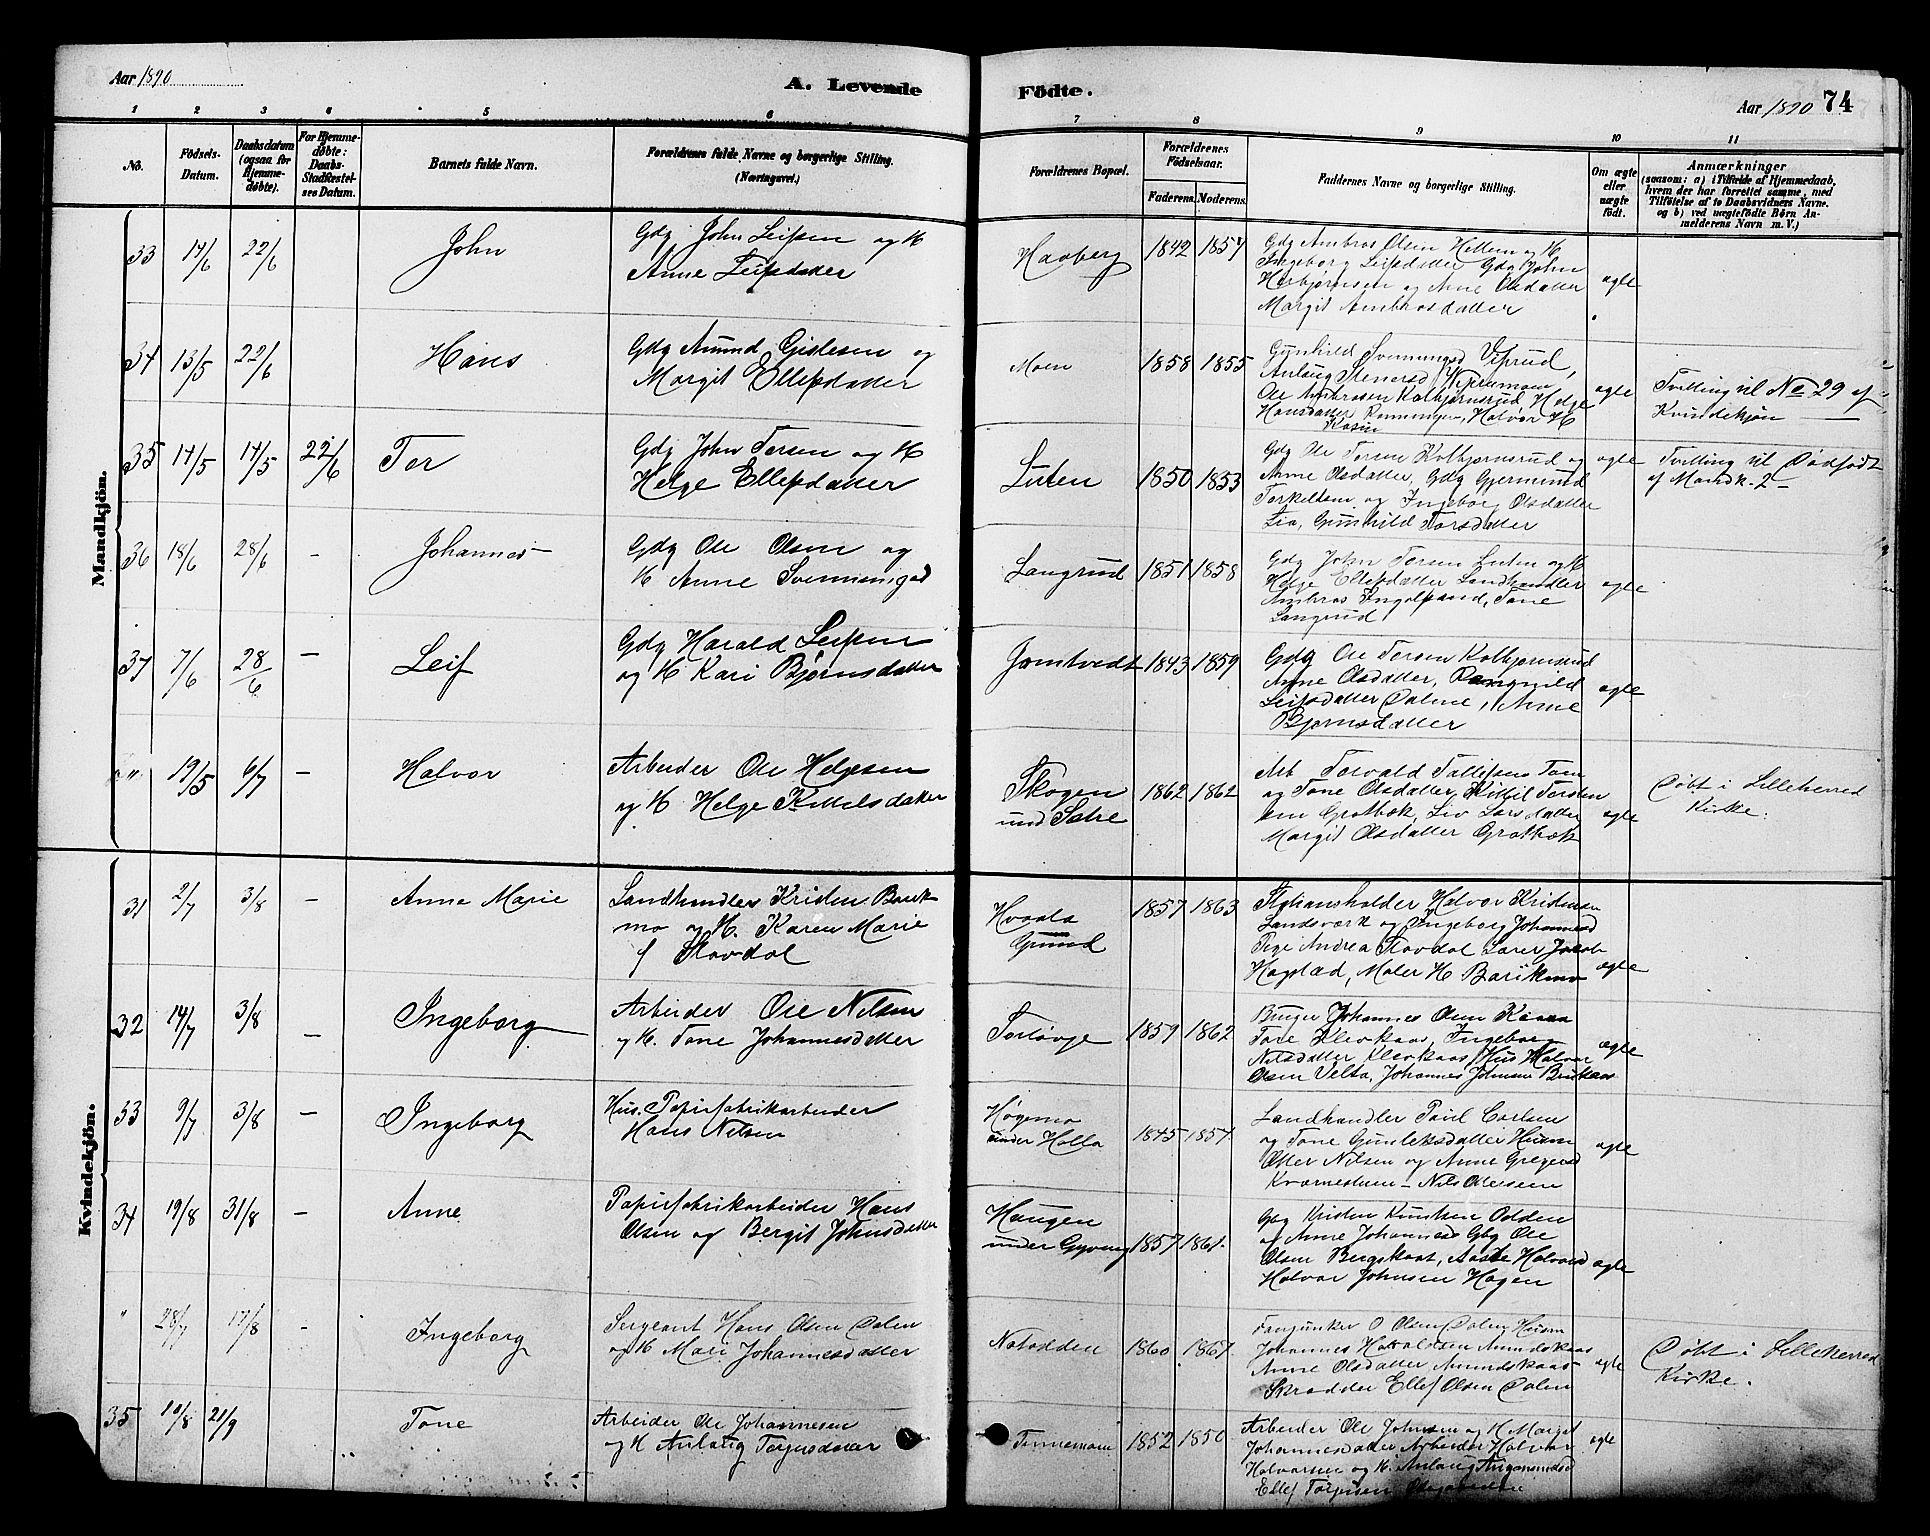 Aar 1890
A. Levende
Födte.
Aar 1890
74
1 2 3 4 5 6
7 8 9 10 11
No.
Födsels-
Datum.
Daabsdatum
(ogsaa for
Hjemme-
døbte).
For Hjemme-
døbte:
Daabs-
Stadfæstel-
ses Datum.
Barnets fulde Navn.
Forældrenes fulde Navne og borgerlige Stilling.
(Næringsvei.)
Forældrenes Bopæl.
Forældrenes
Födselsaar.
Faderens. Moderens.
Faddernes Navne og borgerlige Stilling.
Om ægte
eller
uægte
født.
Anmærkninger
(saasom: a) i Tilfælde af Hjemmedaab,
hvem der har forrettet samme, med
Tilföielse af to Daabsvidners Navne.
og b) ved uægtefödte Börn An-
melderens Navn m. V.)
Mandkjön.
33 17/6 22/6 John
Gdg John Leifsen og H
Anne Leifsdatter
Haaberg 1842 1857
Gdg Ambros Olsen Hellem og H
Ingeborg Leifsdatter Gdg John
Herbjørnsen og Anne Olsdatter
Margit Ambrosdatter
ægte
34 13/5 22/6 Hans
Gdg Amund Gislesen og
Margit Ellefsdatter
Moen 1858 1855
Gunhild Svenningsd
Anlaug Stenersd
Ole Ambrosen Kolbjørnsrud Helge
Hansdatter Halvor H
ægte
Tvilling til No 29 af
Kvindekjøn
35 14/5 14/5 22/6 Tor
Gdg John Torsen og H
Helge Ellefsdatter
Luten 1850 1853
Gdg Ole Torsen Kolbjørnsrud og
Anne Olsdatter, Gdg Gjermund
Torkelsen og Ingeborg Olsdatter
Lia, Gunhild Torsdatter
ægte
Tvilling til Dødfødt
af Mandk. 2
36 18/6 28/6 - Johannes
Gdg Ole Olsen og
H Anne Svenningsd
Langrud 1851 1858
Gdg John Torsen Luten og H
Helge Ellefsdatter Landhandler
Ambros Tone
Langrud
ægte
37 7/6 28/6 - Leif
Gdg Harald Leifsen
og H Kari Bjørnsdatter
Jomtvedt 1843 1859
Gdg Ole Torsen Kolbjørnsrud
Anne Olsdatter, Rangnild
Leifsdatter Dalene, Anne
Bjørnsdatter
ægte
" 19/5 6/7 - Halvor
Arbeider Ole Helgesen
og H Helge Kittelsdatter
Skogen
und Sætre
1862 1862
Arb Torvald Tallefsen
og Tone Olsdatter, Kittil Torsten
sen Grotbæk, Liv Larsdatter
Margit Olsdatter Grotbæk
ægte
Døbt i Lilleherred
Kirke.
Kvindekjön.
31 2/7 3/8 - Anne Marie
Landhandler Kristen Bærk
mo og H. Karen Marie
f Skovdal
Hvaala
Grund
1857 1863
Halvor Kristensen
Landsværk og Ingeborg Johannesd
Pige Andrea Skovdal Lærer Jacob
Hagstad, Maler H Barikmo
ægte
32 14/7 3/8 - Ingeborg
Arbeider Ole Nilsen
og H. Tone Johannesdatter
Torløvge 1859 1862
Bruger Johannes Olsen
Tone Klevkaas, Ingeborg
Nilsdatter Klevkaas Hus Halvor
Olsen Velta, Johannes Johnsen
ægte
33 9/7 3/8 - Ingeborg
Hus. Papirfabrikarbeider
Hans Nilsen
Høgemo
under Holla
1845 1857
Landhandler Paul Carlsen
og Tone Gunleksdatter Husm
Otter Nilsen og Anne Gregersd
Kværnestuen - Nils Ottersen
ægte
34 19/8 31/8 - Anne
Papirfabrikarbeider Hans
Olsen og Bergit Johnsdatter
Haugen
under Gyvung
1857 1861.
Gbg Kristen Knutsen Odden
og Anne Johannesd Gbg Ole
Olsen Bergskaas, Aaste Halvorsd
Halvor Johnsen Hagen
ægte
" 28/7 17/8 - Ingeborg
Sergeant Hans Olsen Dalen
og H Mari Johannesdatter
Notodden 1860 1867.
Fanejunker O Olsen Dalen Husm
Johannes Havaldsen Amundskaas
Anne Olsdatter Amundskaas
Skrædder Ellef Olsen Dalen
ægte
Døbt i Lilleherred
Kirke.
35 10/8 21/9 Tone
Arbeider Ole Johannesen
og H Anlaug Torgersdatter
Tinnemoen 1852 1850
Arbeider Ole Johnsen og H Margit
Johannesdatter Arbeider Halvor
Halvorsen og H. Anlaug
Ellef Torgersen
ægte